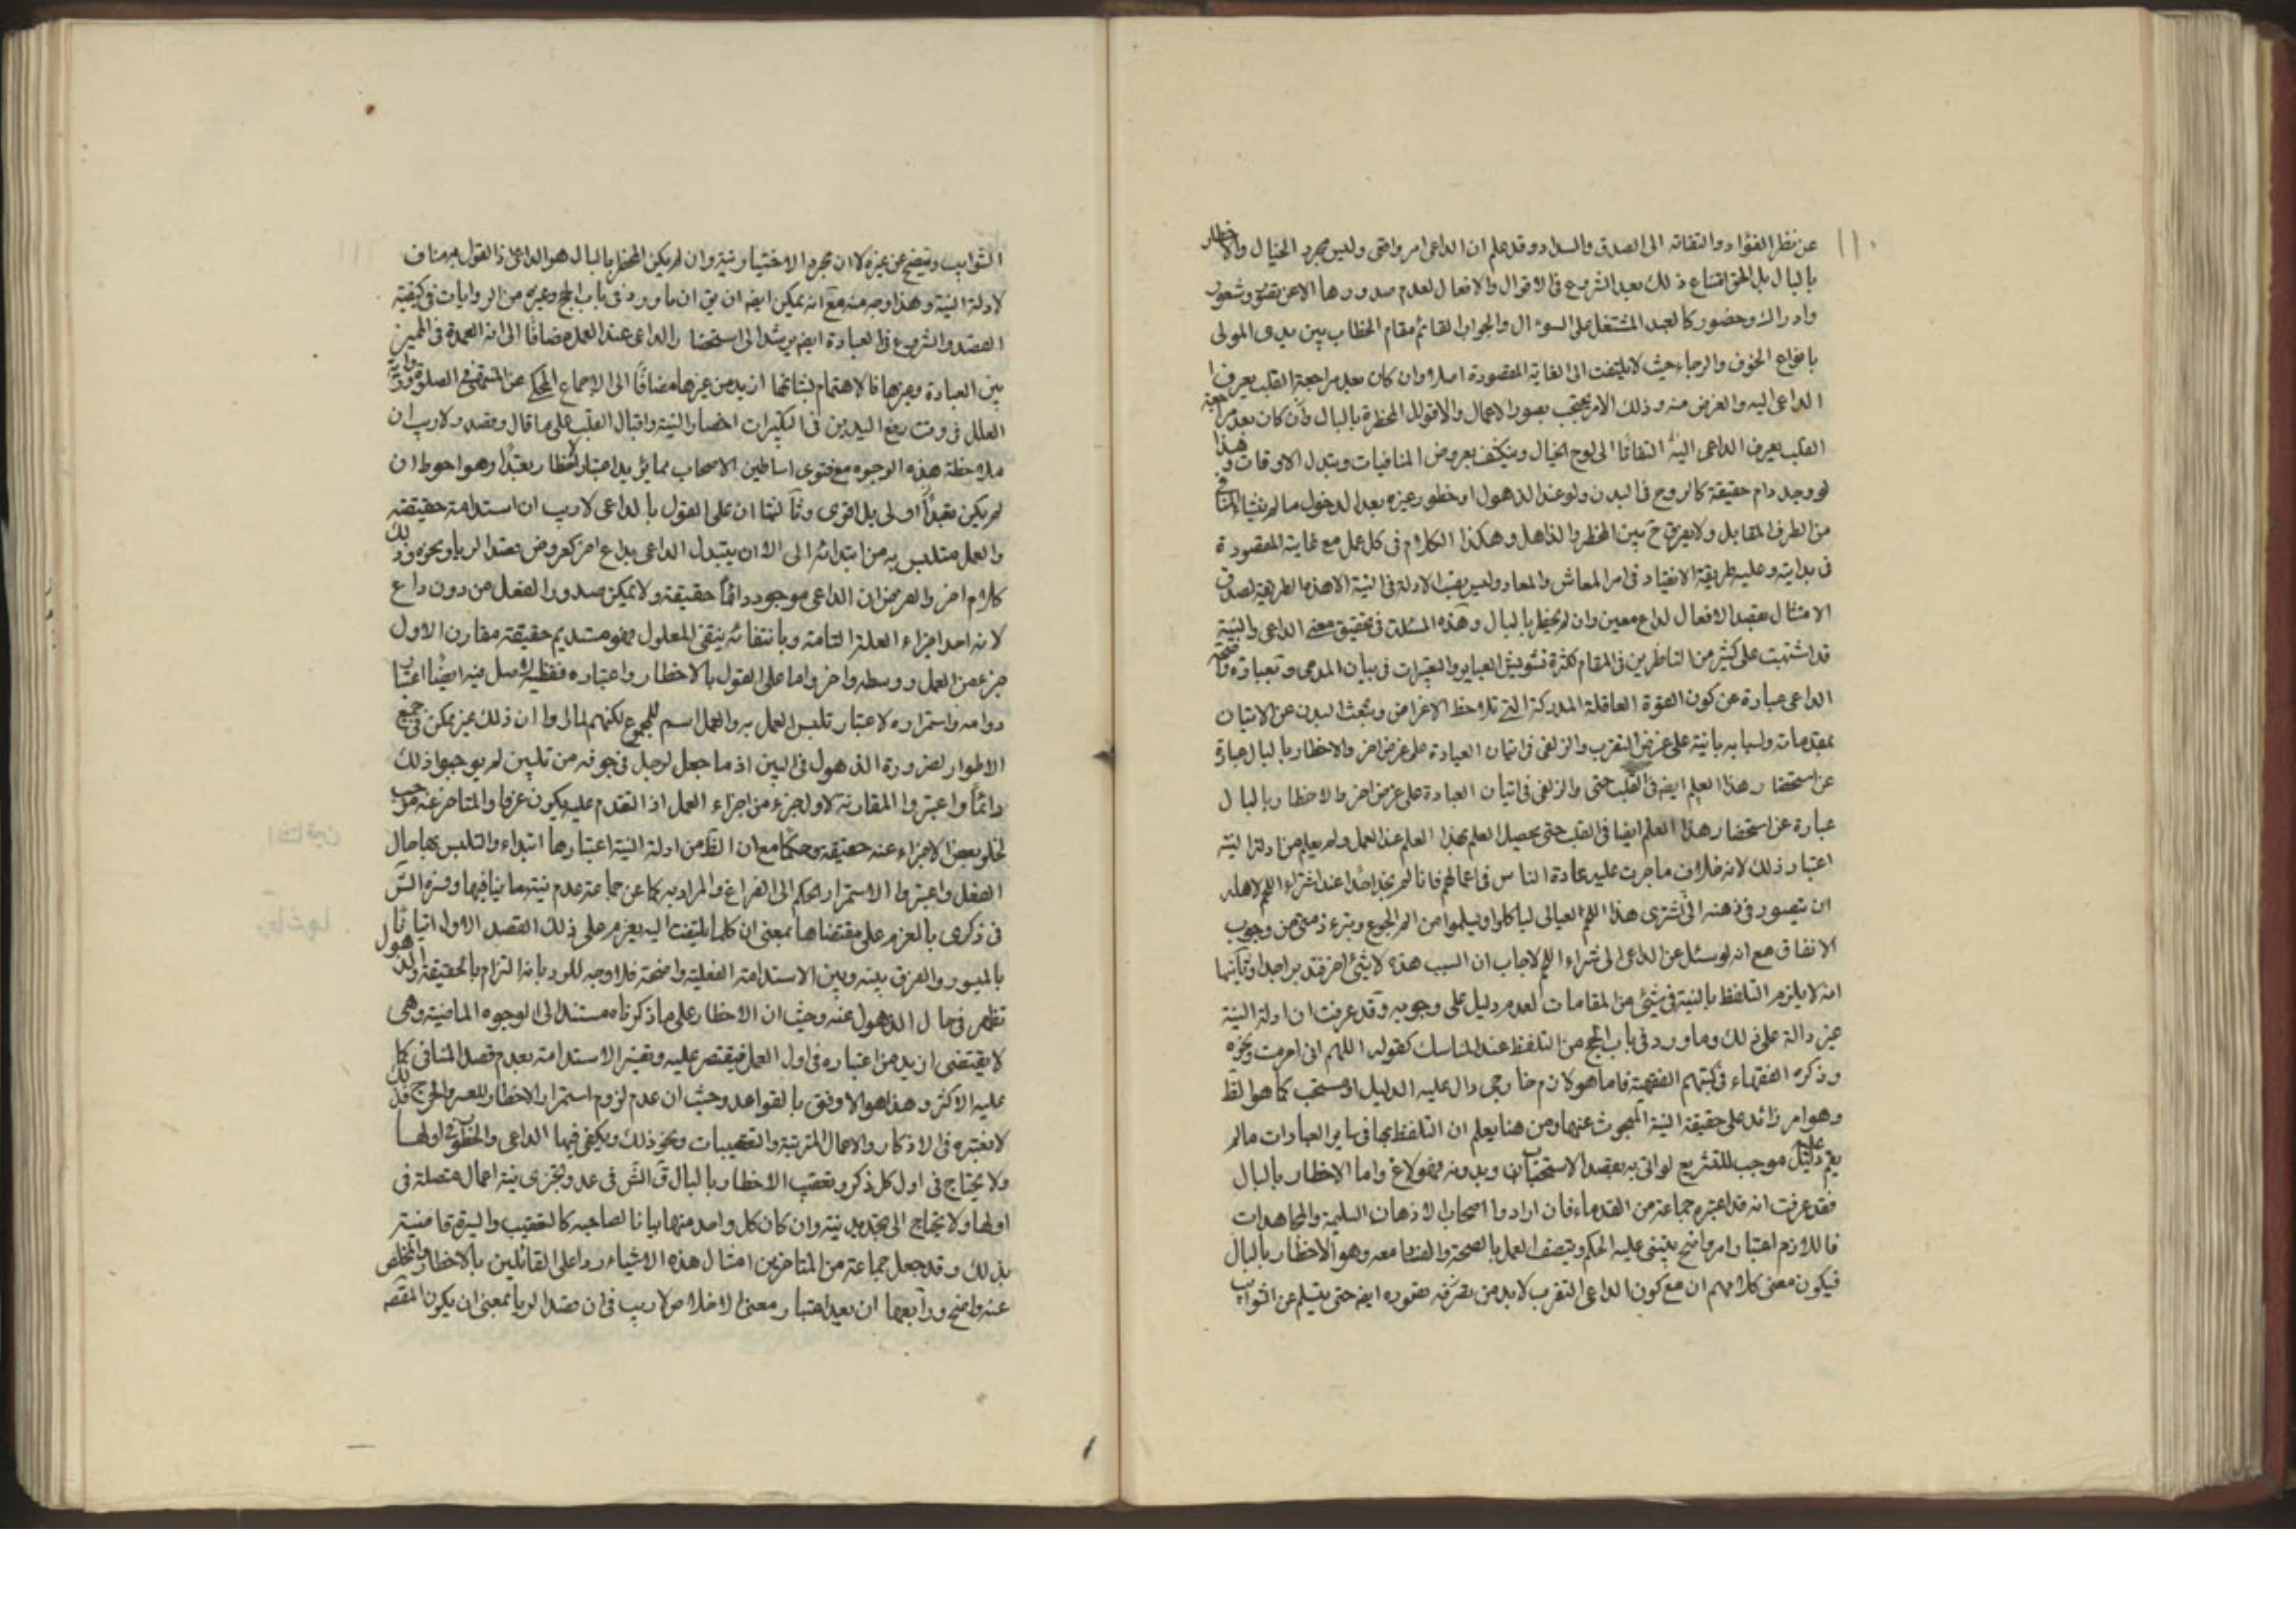 ١١٠
عن نظر الفؤاد والتفاته الى الصدق والسداد وقد علم ان الداعى امر واقعى وليس مجرد الخيال والاخطار
بالبال بل الحق امتناع ذلك بعد الشروع فى الاقوال والافعال لعدم صدورها الا عن تصور وشعور
وادراك وحضور كالعبد المشتغل على السؤال والجواب القائم مقام الخطاب بين يدى المولى
بانواع الخوف والرجاء حيث لا يلتفت الى الغاية المقصودة اصلا وان كان بعد مراجعة القلب يعرف
الداعى اليه والغرض منه وذلك الامر يحتجب بصور الاعمال والاقوال المخطرة بالبال وان كان بعد مراجعة
القلب يعرف الداعى اليه التفاتا الى لوح الخيال وينكشف بعروض المنافيات وتبدل الاوقات وهذا
لو وجد دام حقيقة كالروح فى البدن ولو عند الذهول او خطور غيره بعد الدخول ما لم ينشاء المنافى
من الطرف المقابل ولا يفرق ح بين المخطر والذاهل وهكذا الكلام فى كل عمل مع غايته المقصودة
فى بدايته وعليه طريقة الانقياد فى امر المعاش والمعاد وليس يقتضى الادلة فى النية الا هذه الطريقة لصدق
الامتثال بقصد الافعال لداع معين وان لم يخطر بالبال وهذه المسئلة فى تحقيق معنى الداعى والنية
قد اشتبهت على كثير من الناظرين فى المقام لكثرة تشويش العباير والتعبيرات فى بيان المدعى وبعبارة واضحة
الداعى عبارة عن كون القوة العاقلة المدركة التى تلاحظ الاغراض وتبعث البدن عن الاتيان
بمقدماته واسبابه بانية على غرض التقرب والزلفى فى اتيان العبادة على غرض اخر والاخطار بالبال عبارة
عن استحضار هذا العلم ايضه فى القلب حتى والزلفى فى اتيان العبادة على غرض اخر والاخطار بالبال
عبارة عن استحضار هذا العلم ايضا فى القلب حتى يحصل العلم بهذا العلم عند العمل ولم يعلم من ادلة النية
اعتبار ذلك لانه خلاف ما جرت عليه عادة الناس فى اعمالهم فانا لم نجد احدا عند اشتراء اللحم لاهله
ان يتصور فى ذهنه انى اشترى هذا اللحم لعيالى لياكلوا ويسلموا من الم الجوع وتبرء ذمتى من وجوب
الانفاق مع انه لو سئل عن الداعى الى شراء اللحم لاجاب ان السبب هذه لا شئ اخر فتدبر جدا وثانيها
انه لا يلزم التلفظ بالنية فى شئ من المقامات لعدم دليل على وجوبه وقد عرفت ان ادلة النية
غير دالة على ذلك وما ورد فى باب الحج من التلفظ عند المناسك كقوله اللهم انى احرمت ونحوه
وذكره الفقهاء فى كتبهم الفقهية فاما هو لازم خارجى دال عليه الدليل او مستحب كما هو الظ
وهو امر زائد على حقيقة النية المبحوث عنها ومن هنا يعلم ان التلفظ بها فى ساير العبادات ما لم
يقم عليه دليل موجب للتشريع لو اتى به بقصد الاستحباب وبدونه فهو لاغ واما الاخطار بالبال
فقد عرفت انه قد اعتبره جماعة من القدماء فان ارادوا اصحاب الاذهان السليمة والمجاهدات
فاللازم اعتبار امر واضح يبتنى عليه الحكم ويتصف العمل بالصحة والفساد معه وهو الاخطار بالبال
فيكون معنى كلامهم ان مع كون الداعى التقرب لا بد من تصوره ايضه حتى يسلم عن الشوايب
الشوايب ويتضح عن غيره لا ان مجرد الاختيار نية وان لم يكن المخطر بالبال هو الداعى اذ القول به مناف
لادلة النية وهذا وجه منه مع انه يمكن ايضه ان يق ان ما ورد فى باب الحج وغيره من الروايات فى كيفية
القصد والشروع فى العبادة ايضه يرشد الى استحضار الداعى عند العمل مضافا الى انه العمدة فى المميز
بين العبادة وغيرها فالاهتمام بشانها ازيد من غيرها مضافا الى الاجماع المحكى عن المنتهى فى الصلوة ورواية
العلل فى وقت رفع اليدين فى التكبيرات احضار النية واقبال القلب على ما قال وقصد ولا ريب ان
ملاحظة هذه الوجوه مع فتوى اساطين الاصحاب مما يؤيد اعتبار الاخطار تعبدا وهو احوط ان
لم يكن تعبدا اولى بل اقوى وثالثها ان على القول بالداعى لا ريب ان استدامته حقيقته
والعمل متلبس به من ابتدائه الى الان يتبدل الداعى بداع اخر كعروض قصد الريا ونحوه وذلك
كلام اخر والفرض ان الداعى موجود دائما حقيقة ولا يمكن صدور الفعل من دون داع
لانه احد اجزاء العلة التامة وبانتفائه ينتفى المعلول فهو مستديم حقيقة مقارن لاول
جزء من العمل ووسطه واخر واما على القول بالاخطار واعتباره فقضية الاصل فيه ايضا اعتبار
دوامه واستمراره لاعتبار تلبس العمل به والعمل اسم للمجموع لكنهم لما راوا ان ذلك غير ممكن فى جميع
الاطوار لضرورة الذهول فى البين اذ ما جعل لرجل فى جوفه من قلبين لم يوجبوا ذلك
دائما واعتبروا المقارنة لاول جزء من اجزاء العمل اذ التقدم عليه يكون عزما والمتاخر عنه موجب
لخلو بعض الاجزاء عنه حقيقة وحكما مع ان الظ من ادلة النية اعتبارها ابتداء والتلبس بها حال
الفعل واعتبروا الاستمرار الحكمى الى الفراغ والمراد به كما عن جماعة عدم نية ما ينافيها وفسره الش
فى ذكرى بالعزم على مقتضاها بمعنى ان كلما يلتفت اليه يعزم على ذلك القصد الاول اتيانا
بالميسور والفرق بينه وبين الاستدامة الفعلية واضحة فلا وجه للرد بانه التزام بالحقيقة والذهول
تظهر فى حال الذهول عنه وحيث ان الاخطار على ما ذكرناه مستند الى الوجوه الماضية وهى
لا يقتضى ازيد من اعتباره فى اول العمل فيقتصر عليه وتفسر الاستدامة بعدم قصد المنافى كما
عليه الاكثر وهذا هو الاوفق بالقواعد وحيث ان عدم لزوم استمرار الاخطار للعسر والحرج فلذلك
لا نعتبره فى الاذكار والاعمال المترتبة والتعقيبات ونحو ذلك ويكفى فيها الداعى والخطور فى اولها
ولا يحتاج فى اول كل ذكر وتعقيب الاخطار بالبال ق الش فى عد وتجزى نية اعمال متصلة فى
اولها ولا يحتاج الى تجديد نية وان كان كل واحد منها مباينا لصاحبه كالتعقيب والسيرة قاضية
بذلك وقد جعل جماعة من المتاخرين امثال هذه الاشياء ردا على القائلين بالاخطار والمخلص
عنه واضح ورابعها ان بعد اعتبار معنى الاخلاص لا ريب فى ان قصد الريا بمعنى ان يكون المقصد